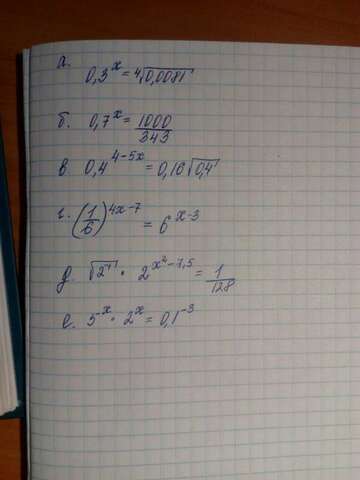 а.
0,3^x = ⁴√0,0081
б. 0,7^x = 1000/343
в. 0,4^(4-5x) = 0,16√0,4
г. (1/6)^(4x-7) = 6^(x-3)
д. √2 · 2^(x²-7,5) = 1/128
е. 5^x · 2^x = 0,1^(-3)